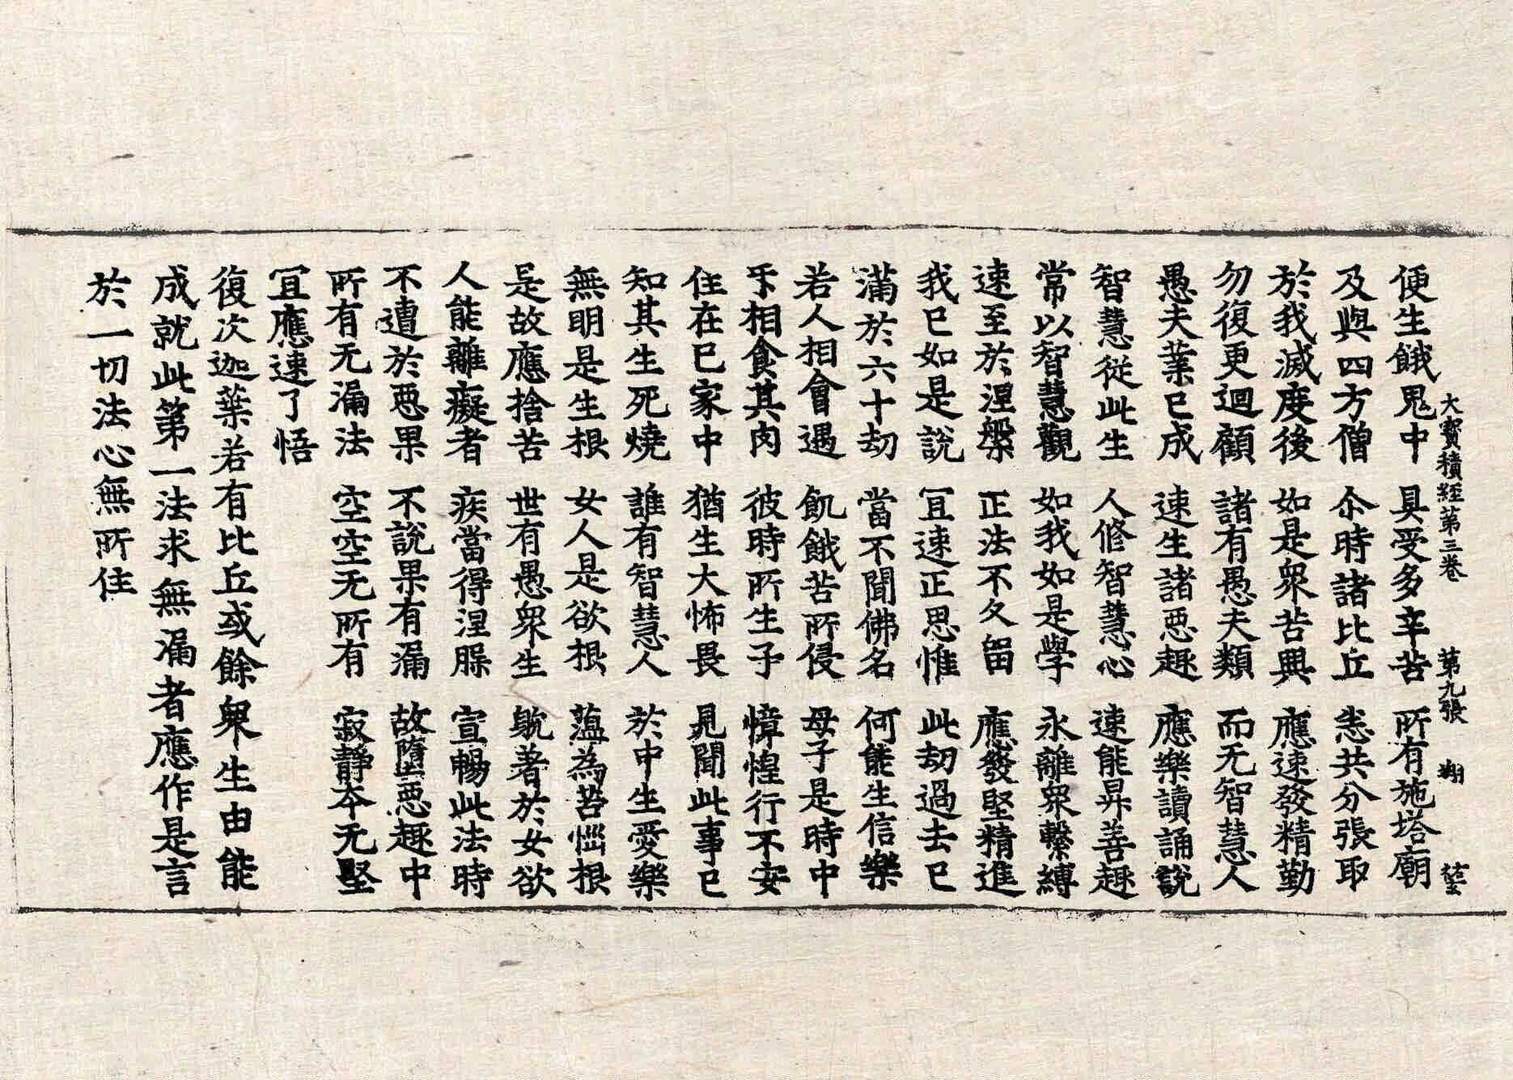 大寶積經第三卷 第九張 翔
便生餓鬼中 具受多辛苦 所有施塔廟
及與四方僧 尒時諸比丘 恚共分張取
於我滅度後 如是衆苦興 應速發精勤
勿復更迴顧 諸有愚夫類 而无智慧人
愚夫業已成 速生諸惡趣 應樂讀誦說
智慧從此生 人修智慧心 速能昇善趣
常以智慧觀 如我如是學 永離衆繫縛
速至於涅槃 正法不久留 應發堅精進
我已如是說 冝速正思惟 此劫過去已
滿於六十劫 當不聞佛名 何能生信樂
若人相會遇 飢餓苦所侵 母子是時中
乎相食其肉 彼時所生子 慞惶行不安
住在已家中 猶生大怖畏 見聞此事已
知其生死燒 誰有智慧人 於中生愛樂
無明是生根 女人是欲根 薀為苦惱根
是故應捨苦 世有愚衆生 躭著於女欲
人能離癡者 疾當得涅槃 宣暢此法時
不遭於惡果 不說果有漏 故墮惡趣中
所有无漏法 空空无所有 寂靜夲无堅
冝應速了悟
復次迦葉若有比丘或餘衆生由能
成就此第一法求無漏者應作是言
於一切法心無所住